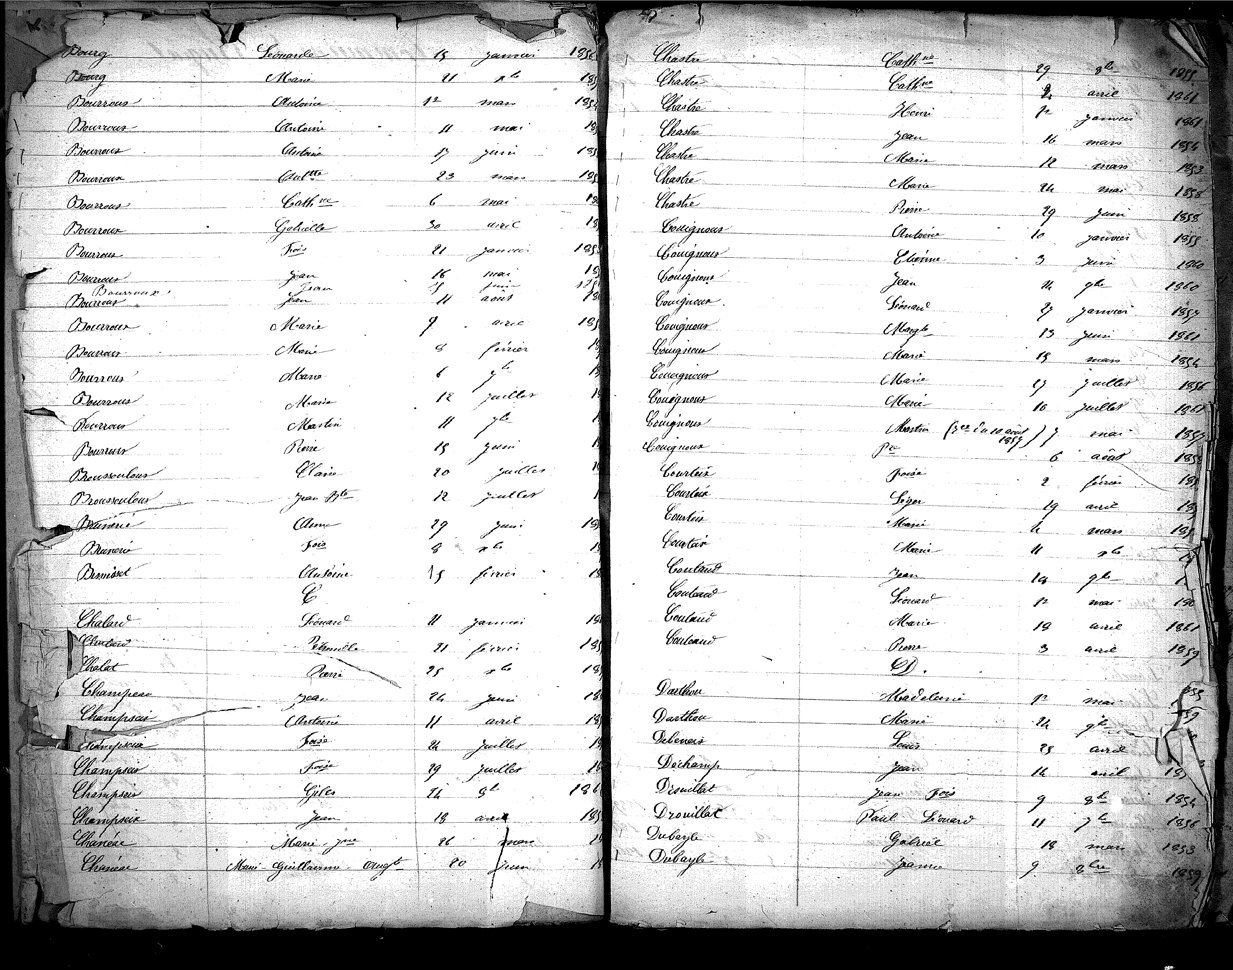 Bourg Léonarde 15 janvier 185
Bourg Marie 21 xbre 18
Bourroux Antoine 12 mars 185
Bourroux Antoine 11 mai 18
Bourroux Antoine 17 juin 185
Bourroux Anttte 23 mars 185
Bourroux Cathne 6 mai 18
Bourroux Gabrielle 30 avril 18
Bourroux Fois 21 janvier 185
Bourroux Jean 16 mai 18
Bourroux Jean 15 juin 185
Bourroux Jean 11 août 18
Bourroux Marie 9 avril 185
Bourroux Marie 8 février 1
Bourroux Marie 6
Bourroux Marie 12 juillet 1
Bourroux Martin 11
Bourroux Pierre 15 juin 1
Broussouloux Claire 20 juillet 1
Broussouloux Jean Bte 12 juillet 1
Brunerie Anne 29 juin 18
Brunerie Fois 8 xbre 1
Antoine 15 février 18
C
Chalard Léonard 11 janvier 18
Chalard Pétronille 21 février 185
Chalat Pierre 25 xbre 18
Champeau Jean 24 juin 18
Champseix Antoine 11 avril 18
Champseix Foise 24 juillet 1
Champseix Foise 29 juillet 1
Champseix Giles 24 8bre 186
Champseix Jean 18 avril 185
Chanéac Marie 26 mars 1
Chanéac Marie Guillaume Augte 20 juin 1
Chastre Cathne 29 8bre 1855
Chastre Cathne avril 1861
Chastre Henri janvier 1861
Chastre Jean 16 mars 1854
Chastre Marie 12 mars 1853
Chastre Marie 24 mai 1858
Chastre Pierre 29 juin 1858
Couignoux Antoine 10 janvier 1855
Couignoux Etienne 3 juin 1860
Couignoux Jean 9bre 1860
Couignoux Léonard 27 janvier 1857
Couignoux Margte 13 juin 1861
Couignoux Marie 15 mars 1854
Couignoux Marie 27 juillet 1856
Couignoux Marie 10 juillet 1861
Couignoux Martin 7 mai 185
Couignoux Pre 6 août 185
Courteix Foise 2 février 185
Courteix Léger 19 avril 185
Courteix Marie 4 mars 185
Courteix Marie 11 xbre
Coutaud Jean 9bre
Coutaud Léonard 12 mai 186
Coutaud Marie 18 avril 1861
Coutaud Pierre 3 avril 1859
D.
Darthou Madeleine mai
Darthou Marie 24 9bre
Debenoit Louis 25 avril
Dechamp Jean 14 avril 18
Drouillat Jean Fois 9 8bre 1854
Drouillat Paul Léonard 11 7bre 1856
Dubayle Gabriel 18 mars 1853
Dubayle Jeanne 9 8bre 1859